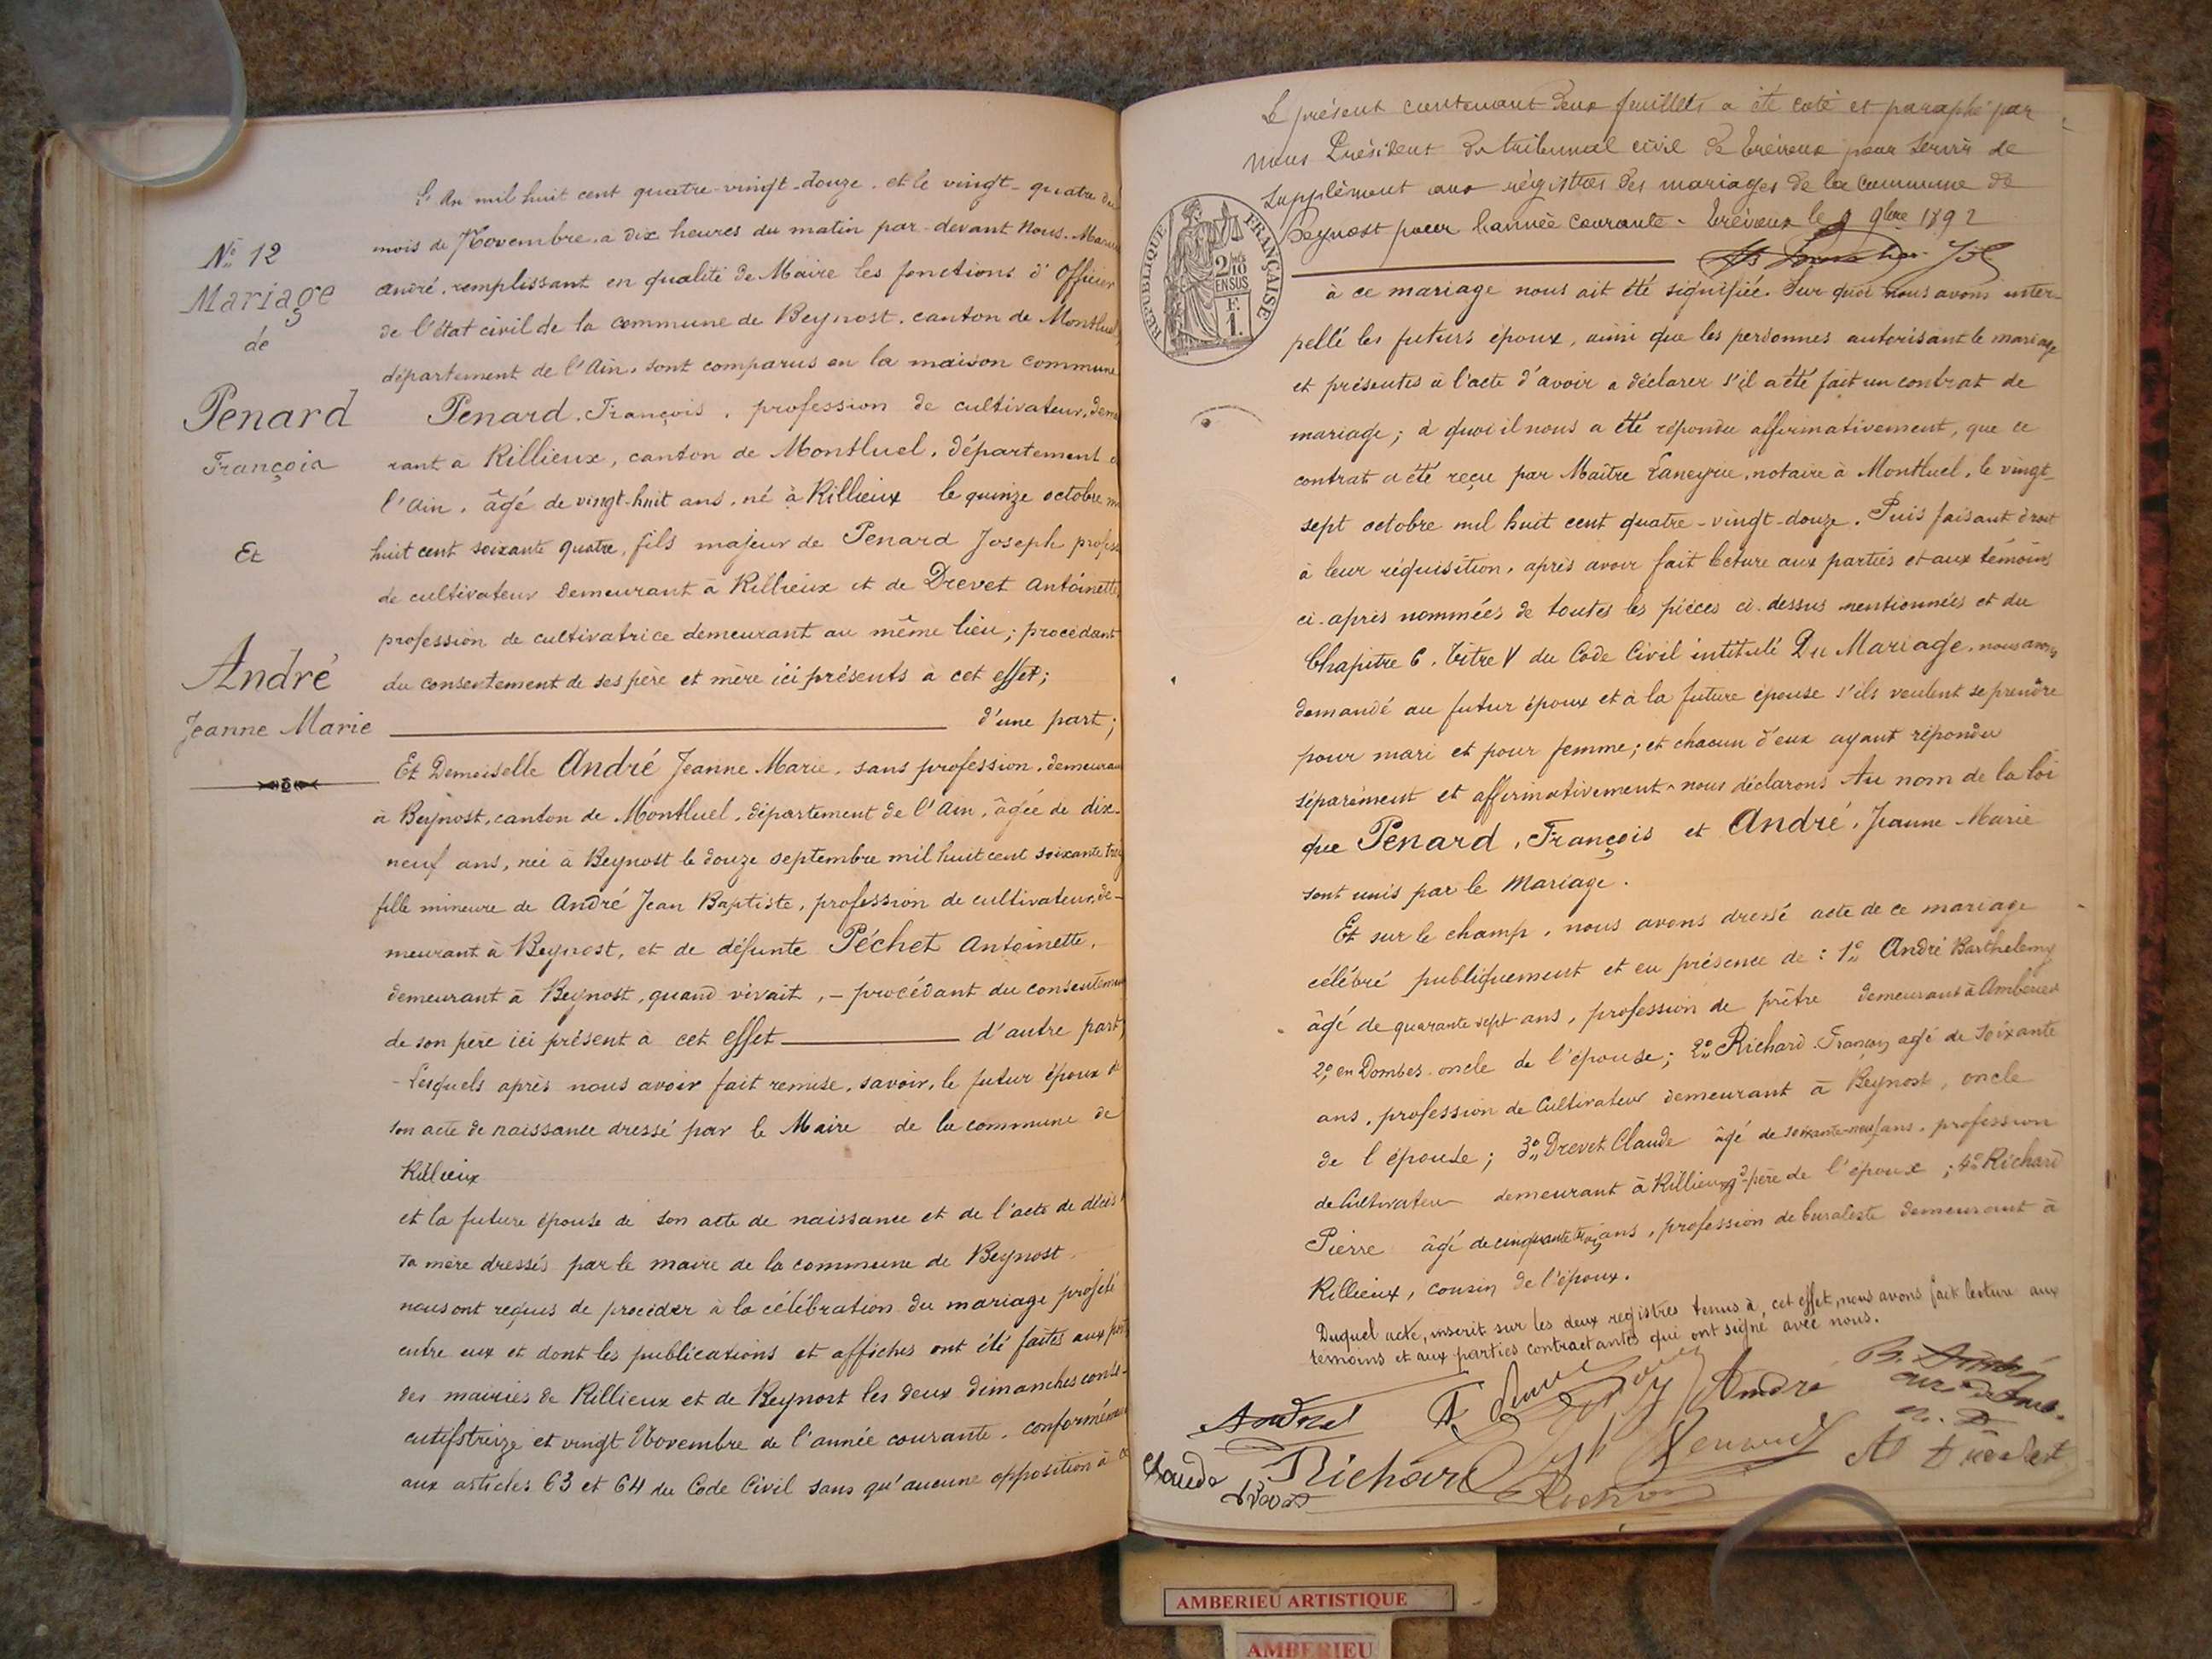 N° 12
Mariage
de
Penard
François
Et
André
Jeanne Marie
L'An mil huit cent quatre-vingt-douze et le vingt-quatre du
mois de Novembre, à dix heures du matin par-devant Nous
André, remplissant en qualité de Maire les fonctions d'Officier
de l'état civil de la commune de Beynost, canton de Montluel
département de l'Ain, sont comparus en la maison commune
Penard, François, profession de cultivateur, deme
rant à Rillieux, canton de Montluel, département
l'Ain, âgé de vingt-huit ans, né à Rillieux le quinze octobre
huit cent soixante quatre, fils majeur de Penard Joseph profess
de cultivateur demeurant à Rillieux et de Drevet Antoinette
profession de cultivatrice demeurant au même lieu; procédant
du consentement de ses père et mère ici présents à cet effet;
d'une part;
Et Demoiselle André Jeanne Marie, sans profession, demeura
à Beynost, canton de Montluel, département de l'Ain, âgée de dix-
neuf ans, née à Beynost le douze septembre mil huit cent soixante treiz
fille mineure de André Jean Baptiste, profession de cultivateur, de-
meurant à Beynost, et de défunte Péchet Antoinette,
demeurant à Beynost, quand vivait, - procédant du consentemen
de son père ici présent à cet effet d'autre part;
- Lesquels après nous avoir fait remise, savoir, le futur époux de
son acte de naissance dressé par le Maire de la commune de
Rillieux
et la future épouse de son acte de naissance et de l'acte de décès
sa mère dressés par le maire de la commune de Beynost
nous ont requis de procéder à la célébration du mariage projeté
entre eux et dont les publications et affiches ont été faites aux por
des mairies de Rillieux et de Beynost les deux dimanches consé-
cutifs treize et vingt Novembre de l'année courante, conformémen
aux articles 63 et 64 du Code Civil sans qu'aucune opposition à ce
Le présent contenant deux feuillets a été coté et paraphé par
nous Président du tribunal civil de Trévoux pour servir de
supplément aux régistres des mariages de la commune de
Beynost pour l'année courante - Trévoux le 9 9bre 1892
REPUBLIQUE FRANÇAISE
2/10
EN SUS
F.
1.
à ce mariage nous ait été signifiée. Sur quoi nous avons inter-
pellé les futurs époux, ainsi que les personnes autorisant le mariage
et présentes à l'acte d'avoir a déclarer s'il a été fait un contrat de
mariage; à quoi il nous a été répondu affirmativement, que ce
contrat a été reçu par Maître Laneyrie, notaire à Montluel, le vingt-
sept octobre mil huit cent quatre-vingt-douze. Puis faisant droit
à leur réquisition, après avoir fait lecture aux parties et aux témoins
ci-après nommées de toutes les pièces ci-dessus mentionnées et du
Chapitre 6, Titre V du Code Civil intitulé Du Mariage, nous avons
demandé au futur époux et à la future épouse s'ils veulent se prendre
pour mari et pour femme; et chacun d'eux ayant répondu
séparément et affirmativement nous déclarons Au nom de la loi
que Penard, François et André, Jeanne Marie
sont unis par le Mariage.
Et sur le champ, nous avons dressé acte de ce mariage
célébré publiquement et en présence de: 1° André Barthelemy
âgé de quarante sept ans, profession de prêtre demeurant à Amberieux
en Dombes oncle de l'épouse; 2° Richard François agé de soixante
ans, profession de Cultivateur demeurant à Beynost, oncle
de l'épouse; 3° Drevet Claude âgé de soixante-neuf ans, profession
de Cultivateur demeurant à Rillieux gd-père de l'époux; 4° Richard
Pierre âgé de cinquante trois ans, profession de buraliste demeurant à
Rillieux, cousin de l'époux.
Duquel acte, inscrit sur les deux registres tenus à cet effet, nous avons fait lecture aux
témoins et aux parties contractantes qui ont signé avec nous.
André
André
Claude
Richard
AMBERIEU ARTISTIQUE
AMBERIEU